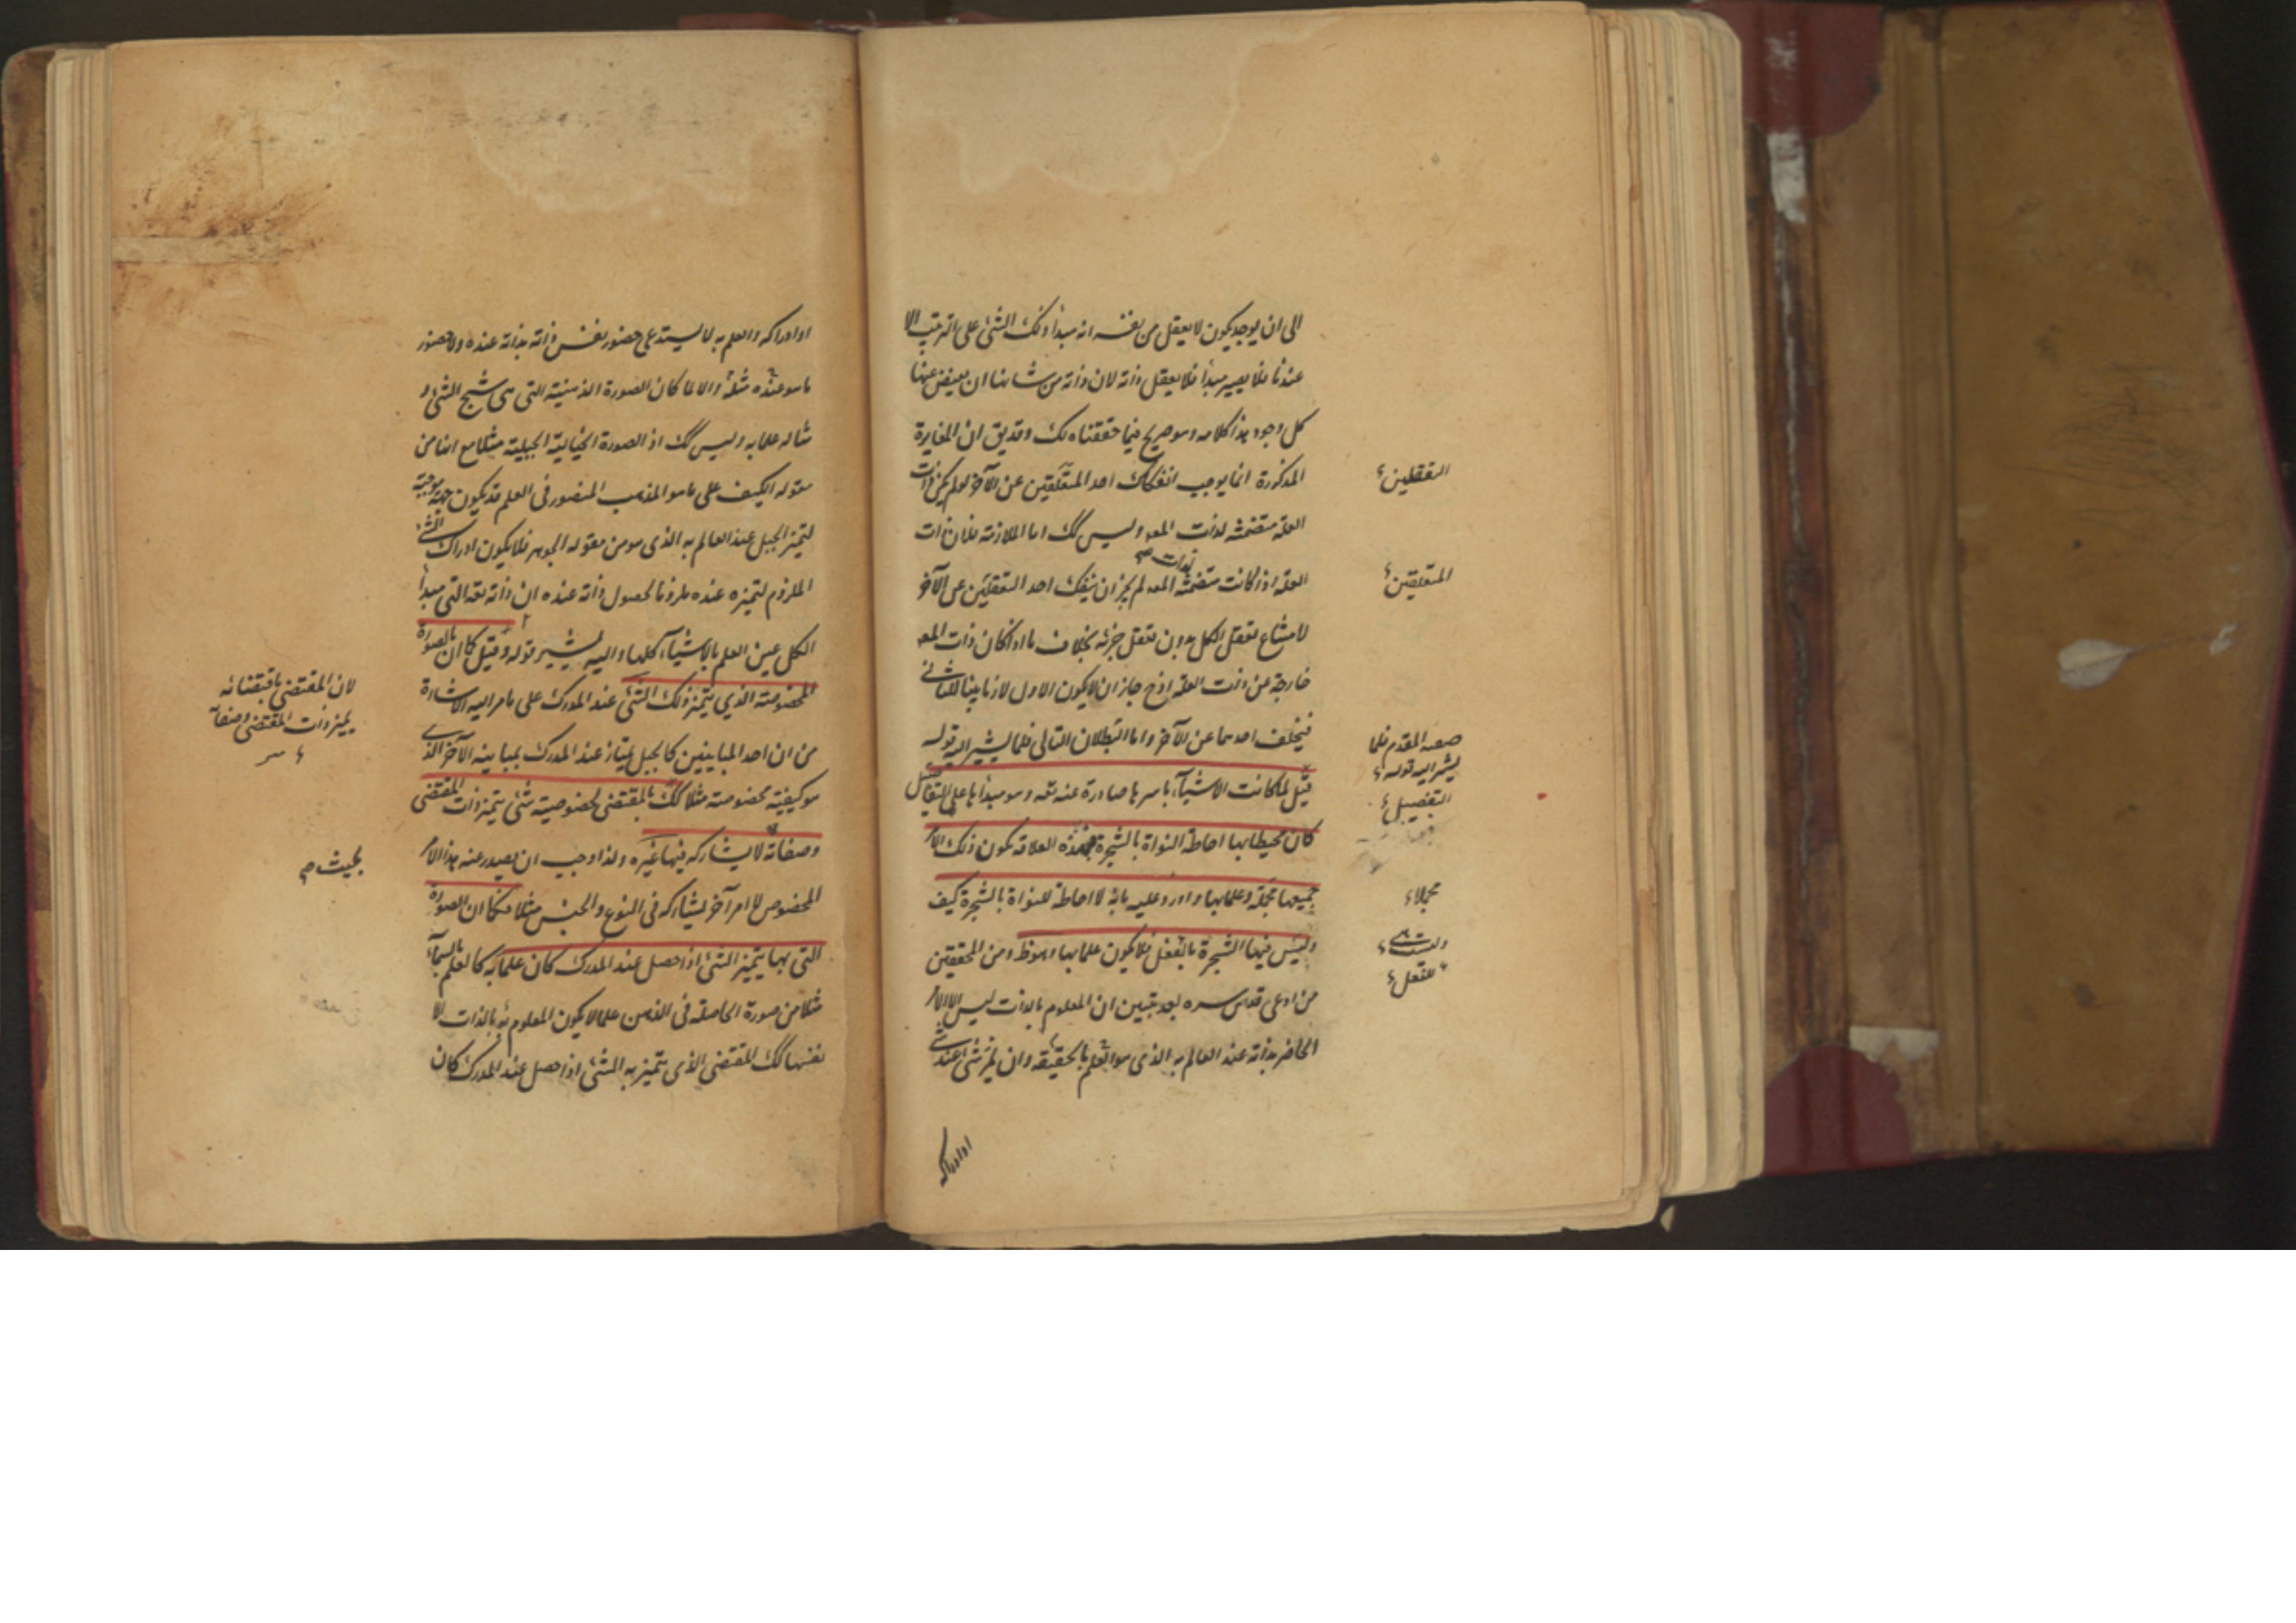 الى ان يوجد يكون لا يعقل من نفسه انه مبدأ ذلك الشئ على الترتيب الا
عندنا فلا يصير مبدأ فلا يعقل ذاته لان ذاته من شانها ان يفيض عنها
كل وجود هذا كلامه وهو صريح فيما حققناه لك وقد يق ان المغايرة
المذكورة انما يوجب انفكاك احد المتعلقين عن الآخر لو لم يكن ذات
العلة متضمنة لذات المعه وليس كك اما الملازمة فلان ذات
العلة اذا كانت متضمنة المعه لم يجز ان ينفك احد التعقلين عن الآخر
لذات صح
لامتناع تعقل الكل بدون تعقل جزئه بخلاف ما اذا كان ذات المعه
خارجة عن ذات العلة اذ ح جاز ان لا يكون الاول لازما بينا للثانى
فيتخلف احدهما عن الآخر واما البطلان التالى فلما يشير اليه قوله
قيل لما كانت الاشيآء باسرها صادرة عنه تعه وهو مبدأ لها على التفاصيل
كان محيطا بها احاطة النواة بالشجرة فهذه العلاقة يكون ذلك الامر
جميعها مجملة وعلما بها واورد عليه بانه لا احاطة للنواة بالشجرة كيف
وليس فيها الشجرة بالفعل فلا يكون علما بها وهو ظ ومن المحققين
من ادعى قدس سره بعد تبيين ان المعلوم بالذات ليس الا الامر
الحاضر بذاته عند العالم به الذى هو العلم بالحقيقة وان تميز شئ عند شئ
اوادراكه
التعقلين
المتعلقين
صعه المقدم فلما
يشير اليه قوله
التفصيل
مجملا
وليست هى
للتعقل
او ادراكه والعلم به لا يستدعى حضور نفس ذاته بذاته عنده ولا حضور
ما هو عنده مثله والا لما كان الصورة الذهنية التى هى شبح الشئ و
مثاله علما به وليس كك اذ الصورة الخيالية الجبلية مثلا مع انها من
مقولة الكيف على ما هو المذهب المنصور فى العلم قد يكون جهة موجبة
لتميز الجبل عند العالم به الذى هو من مقولة الجوهر فلا يكون ادراك الشئ
الملزوم لتميزه عنده ملزوما لحصول ذاته عنده ان ذاته تعه التى مبدأ
الكل عين العلم بالاشيآء كلها واليه يشير قوله وقيل كما ان بالصورة
المخصوصة الذي يتميز ذلك الشئ عند المدرك على ما مر اليه الاشارة
من ان احد المباينين كالجبل يمتاز عند المدرك بمباينه الآخر الذى
هو كيفية مخصوصة مثلا كك بالمقتضى لخصوصية شئ يتميز ذات المقتضى
وصفاته لا يشاركه فيها غيره ولذا وجب ان يصدر عنه هذا الامر
المخصوص لا امر آخر يشاركه فى النوع والجنس مثلا فكما ان الصورة
التى بها يتميز الشئ اذا حصل عند المدرك كان علما به كالعلم بالسمآء
مثلا من صورة الحاصلة فى الذهن علما لا يكون المعلوم به بالذات الا
نفسها كك المقتضى الذى يتميز به الشئ اذا حصل عند المدرك كان
لان المقتضى باقتضائه
يميز ذات المقتضى وصفاته
بحيث صح